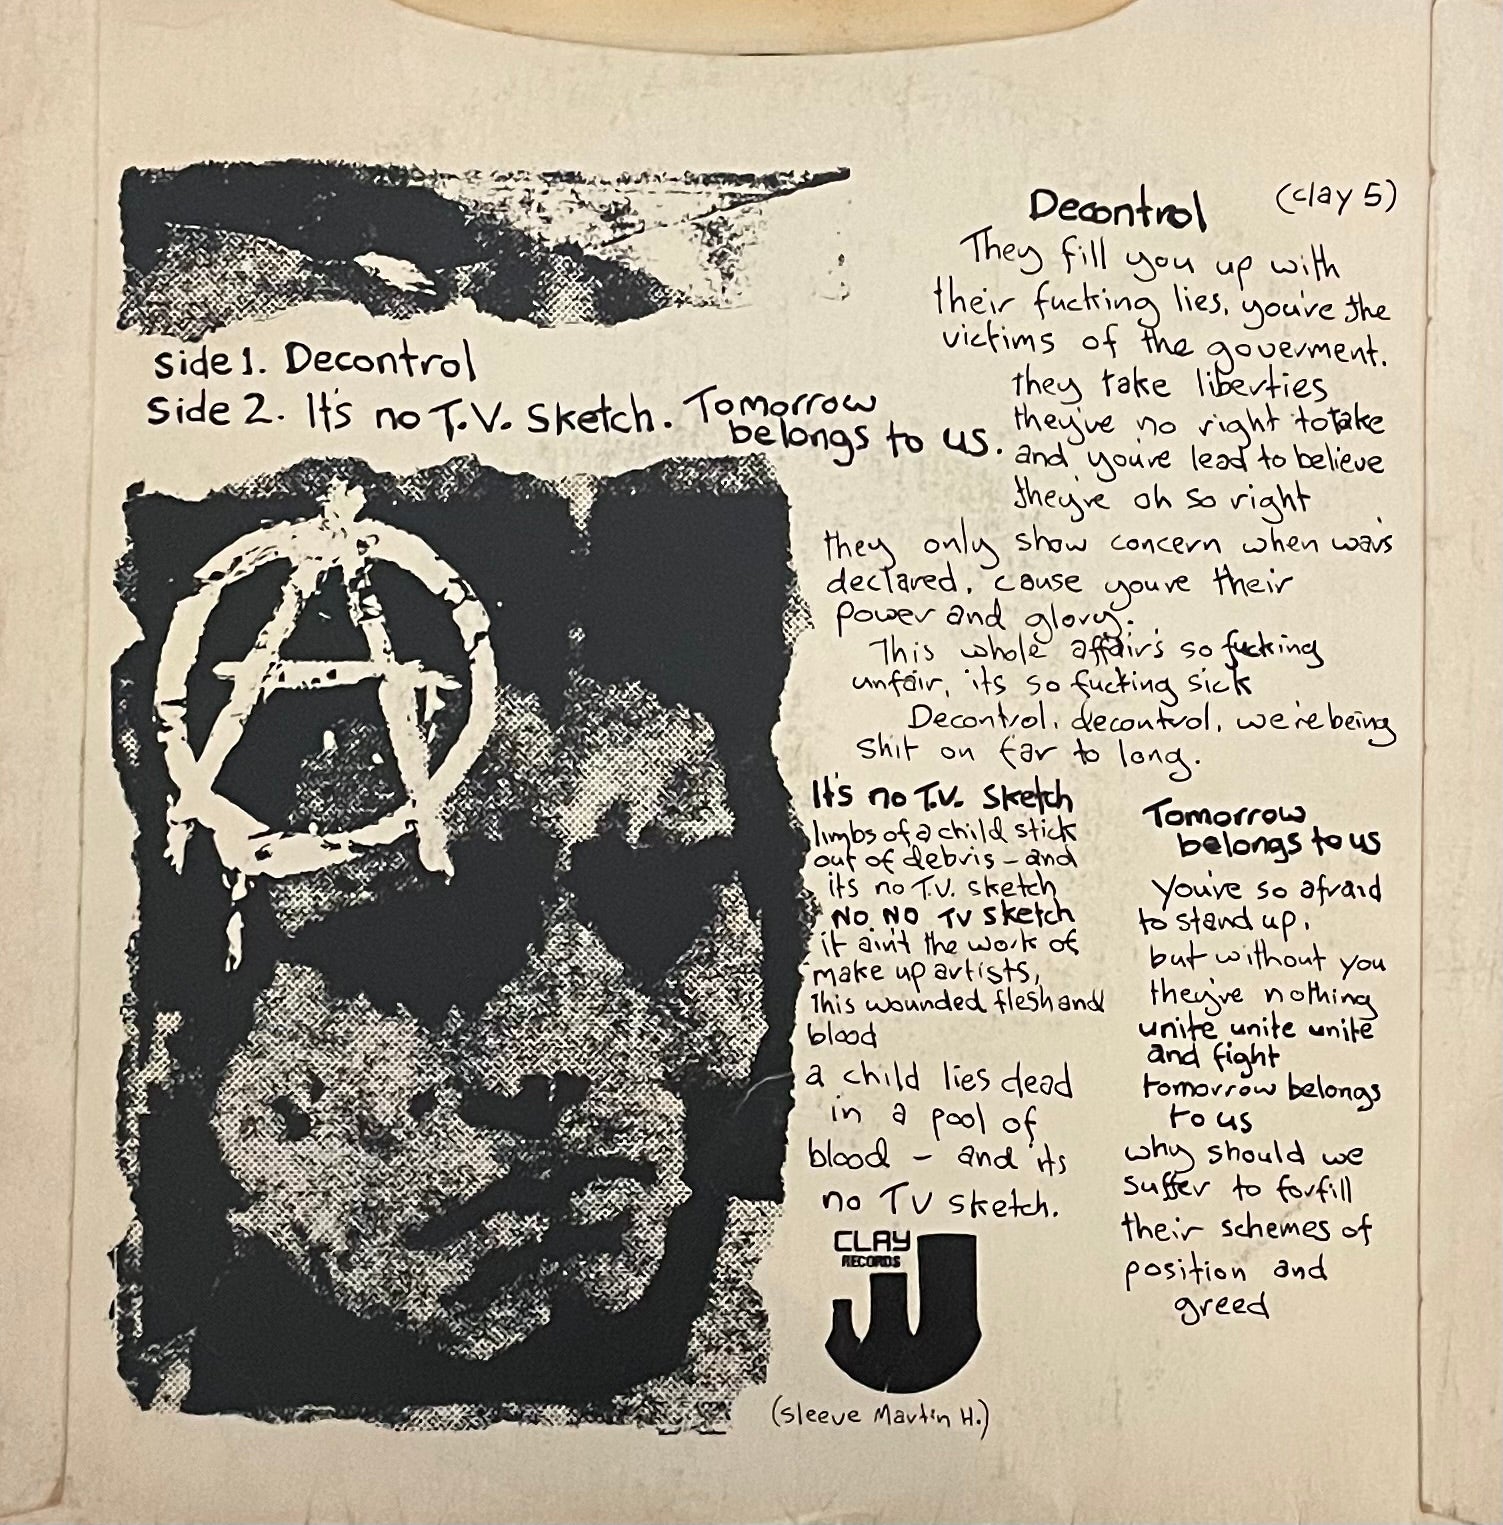 side 1. Decontrol
Side 2. It's no T.V. Sketch. Tomorrow
belongs to us.
Decontrol (clay 5)
They fill you up with
their fucking lies, you're the
victims of the goverment.
they take liberties
they've no right to take
and you're lead to believe
they're oh so right
they only show concern when war's
declared, cause youre their
power and glory.
This whole affair's so fucking
unfair, its so fucking sick
Decontrol, decontrol, we're being
shit on far to long.
It's no T.V. Sketch
limbs of a child stick
out of debris - and
its no T.V. sketch
NO NO TV sketch
it ain't the work of
make up artists,
This wounded flesh and
blood
a child lies dead
in a pool of
blood - and its
no TV sketch.
Tomorrow
belongs to us
You're so afraid
to stand up,
but without you
they're nothing
unite unite unite
and fight
tomorrow belongs
to us
why should we
suffer to forfill
their schemes of
position and
greed
CLAY
RECORDS
(sleeve Martin H.)